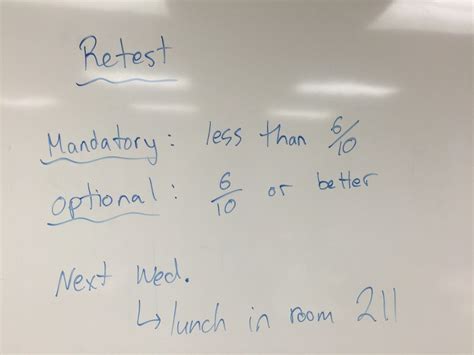 Retest
Mandatory: less than 6/10
Optional: 6/10 or better
Next Wed.
↳ lunch in room 211